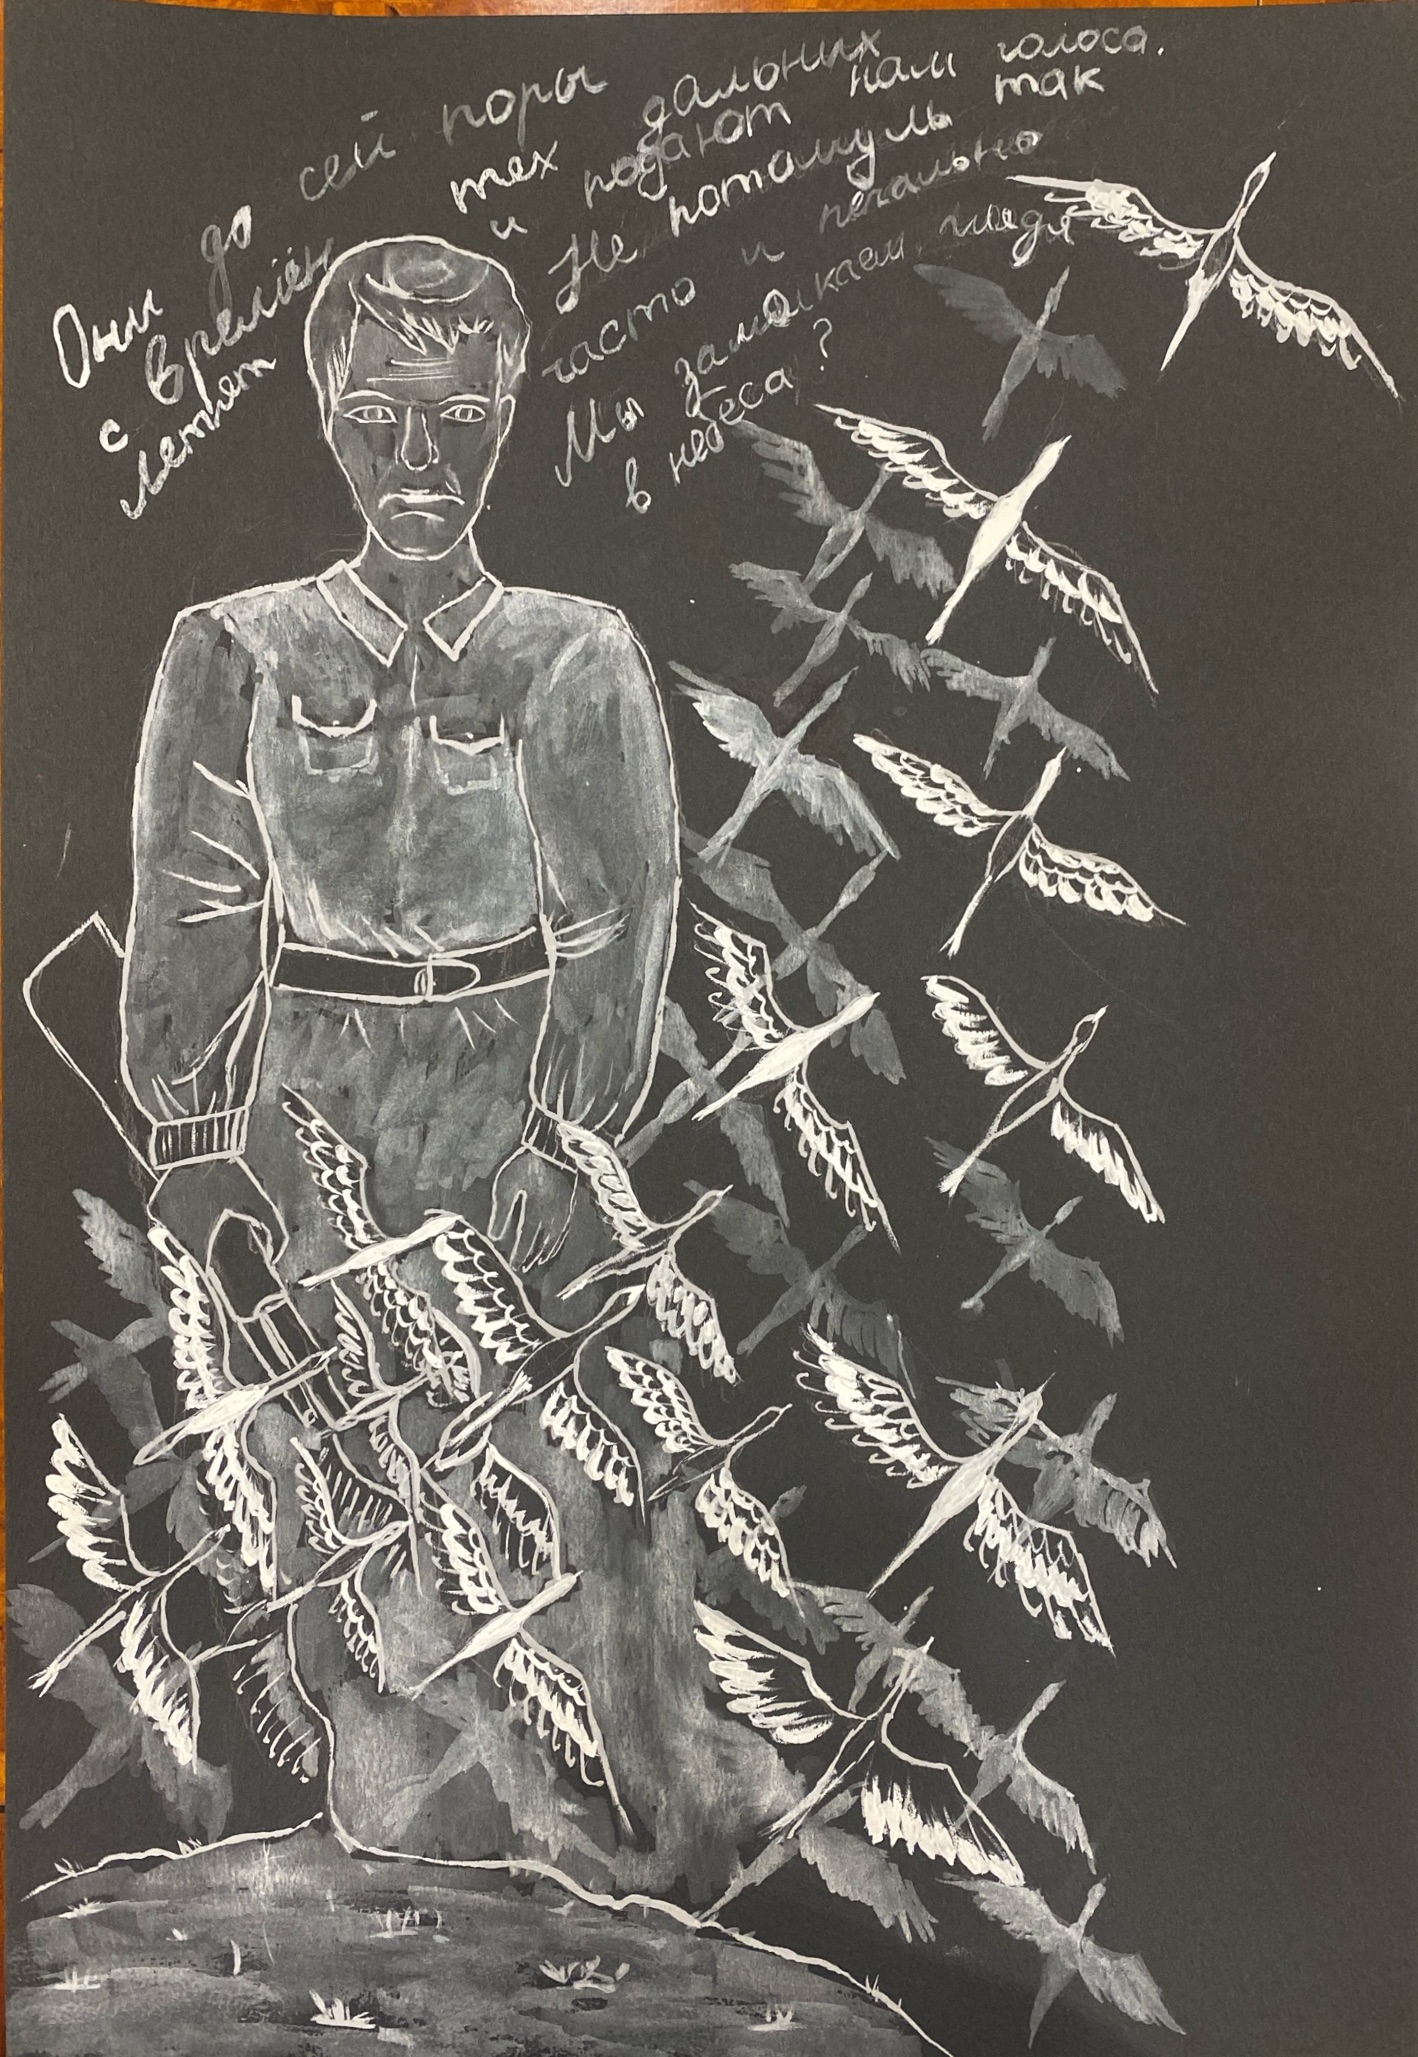 Они до сей поры
с времён тех дальних
летят и подают нам голоса.
Не потомуль так
часто и печально
Мы замолкаем, глядя
в небеса?